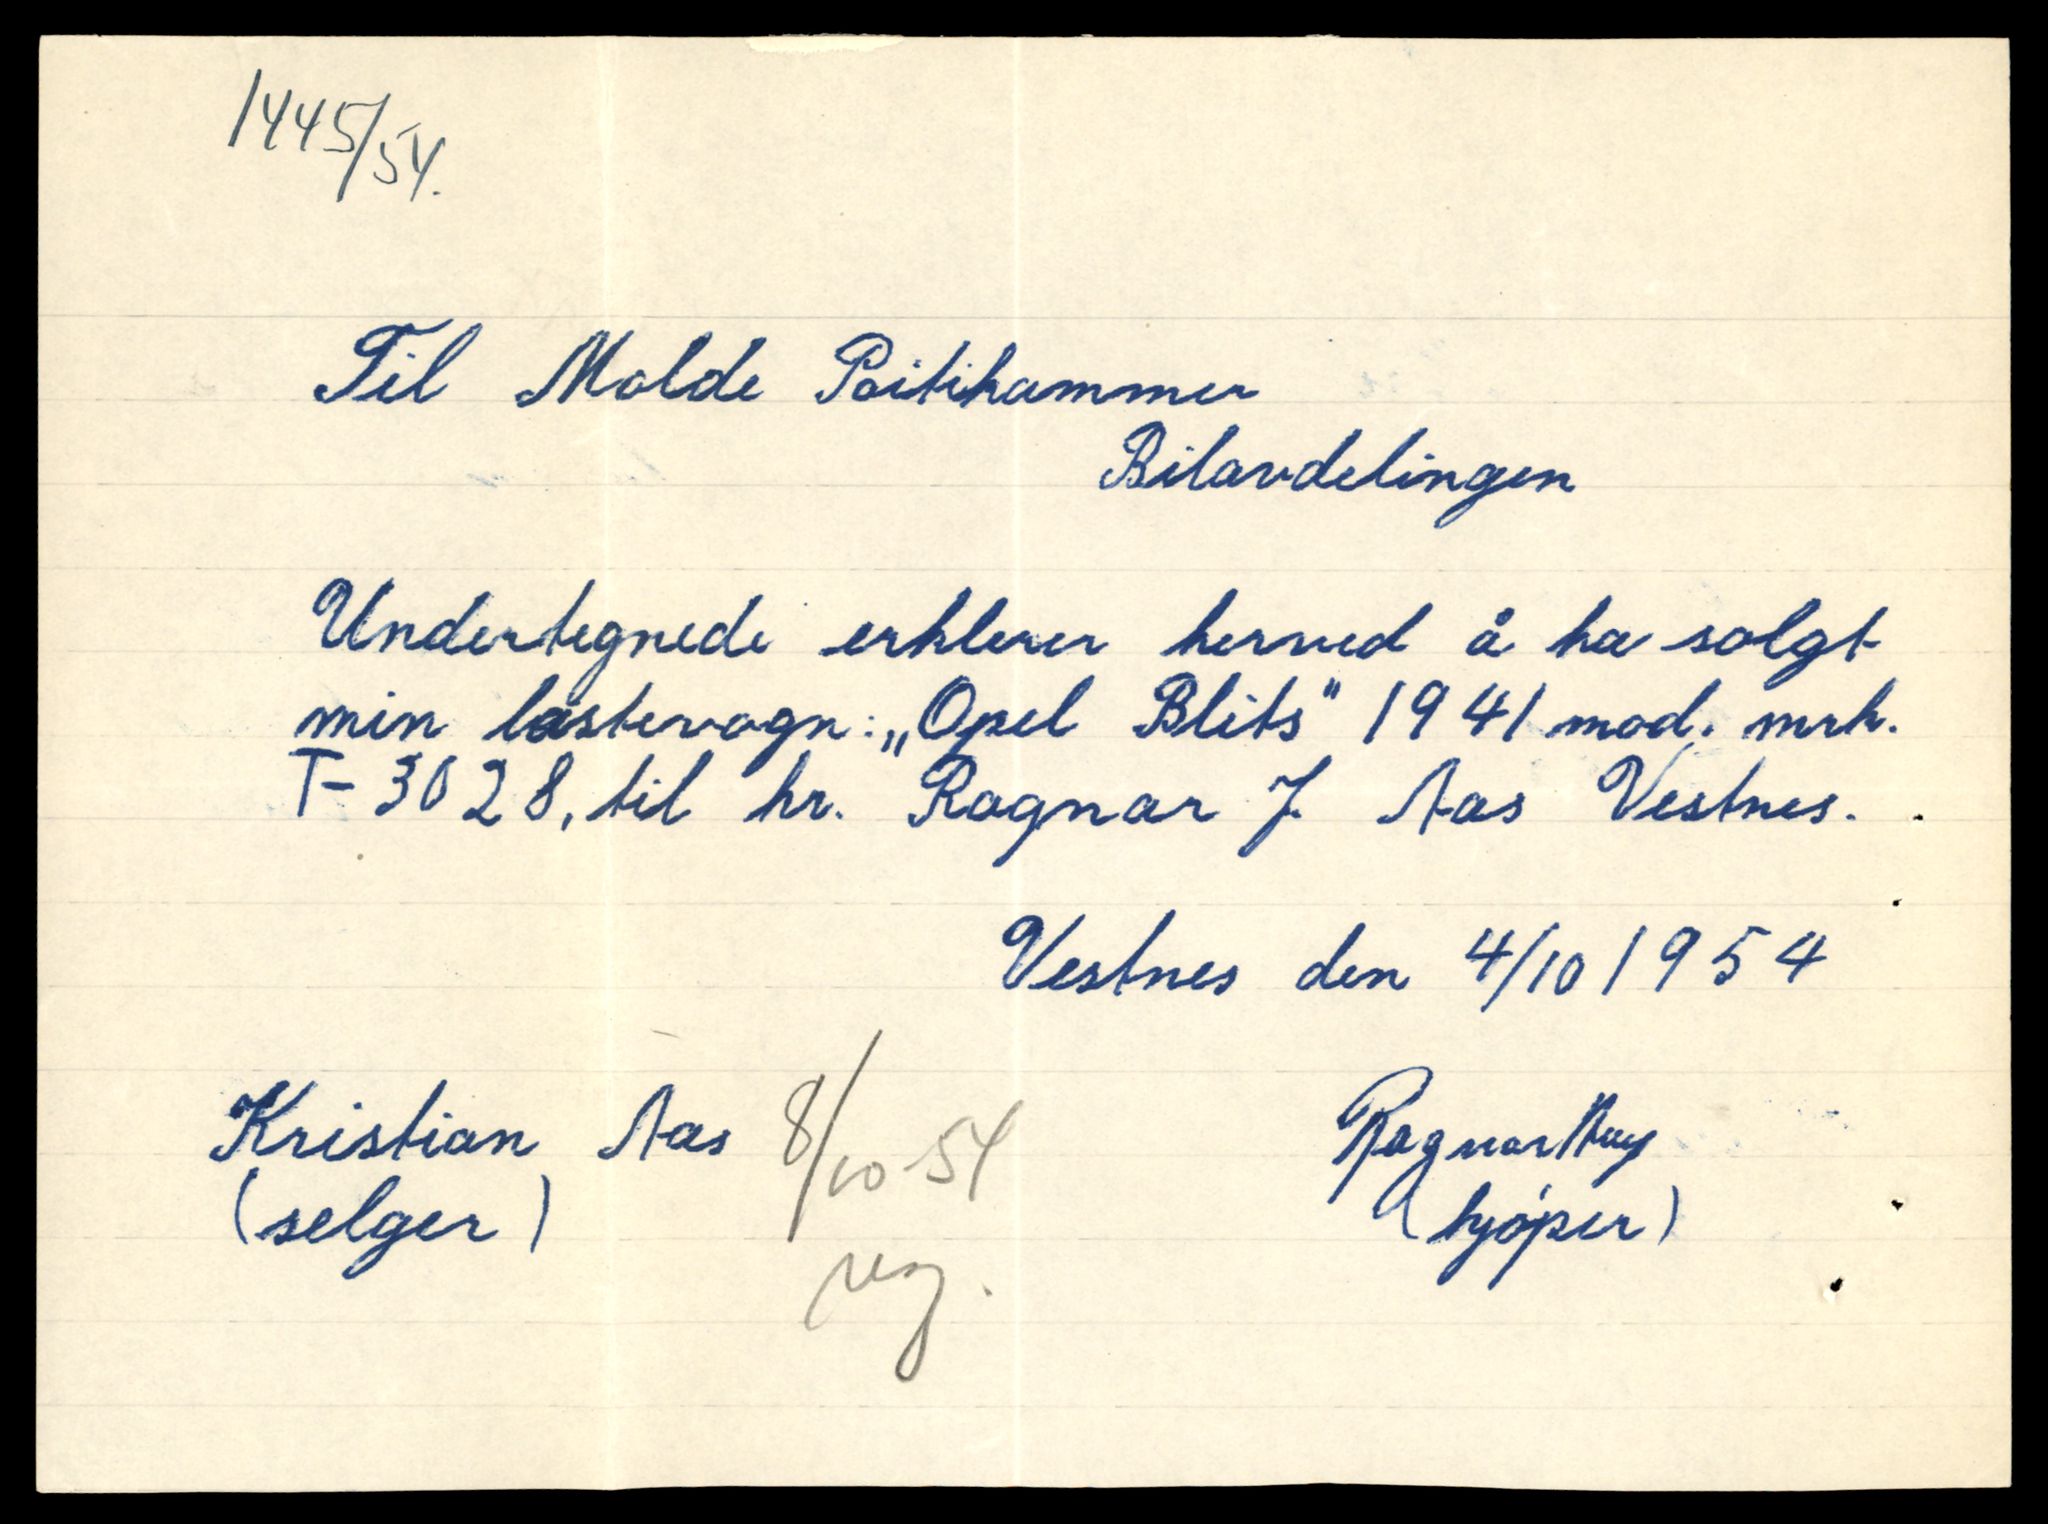 1445/54.
Til Molde Poitikammer
Bilavdelingen
Undertegnede erklerer herved å ha solgt
min lastevogn: „Opel Blits" 1941 mod. mrk.
T-3028, til hr. Ragnar J. Aas Vestnes.
Vestnes den 4/10 1954
Kristian Aas 8/10-54 Ragnar Aas
(selger) (kjøper)